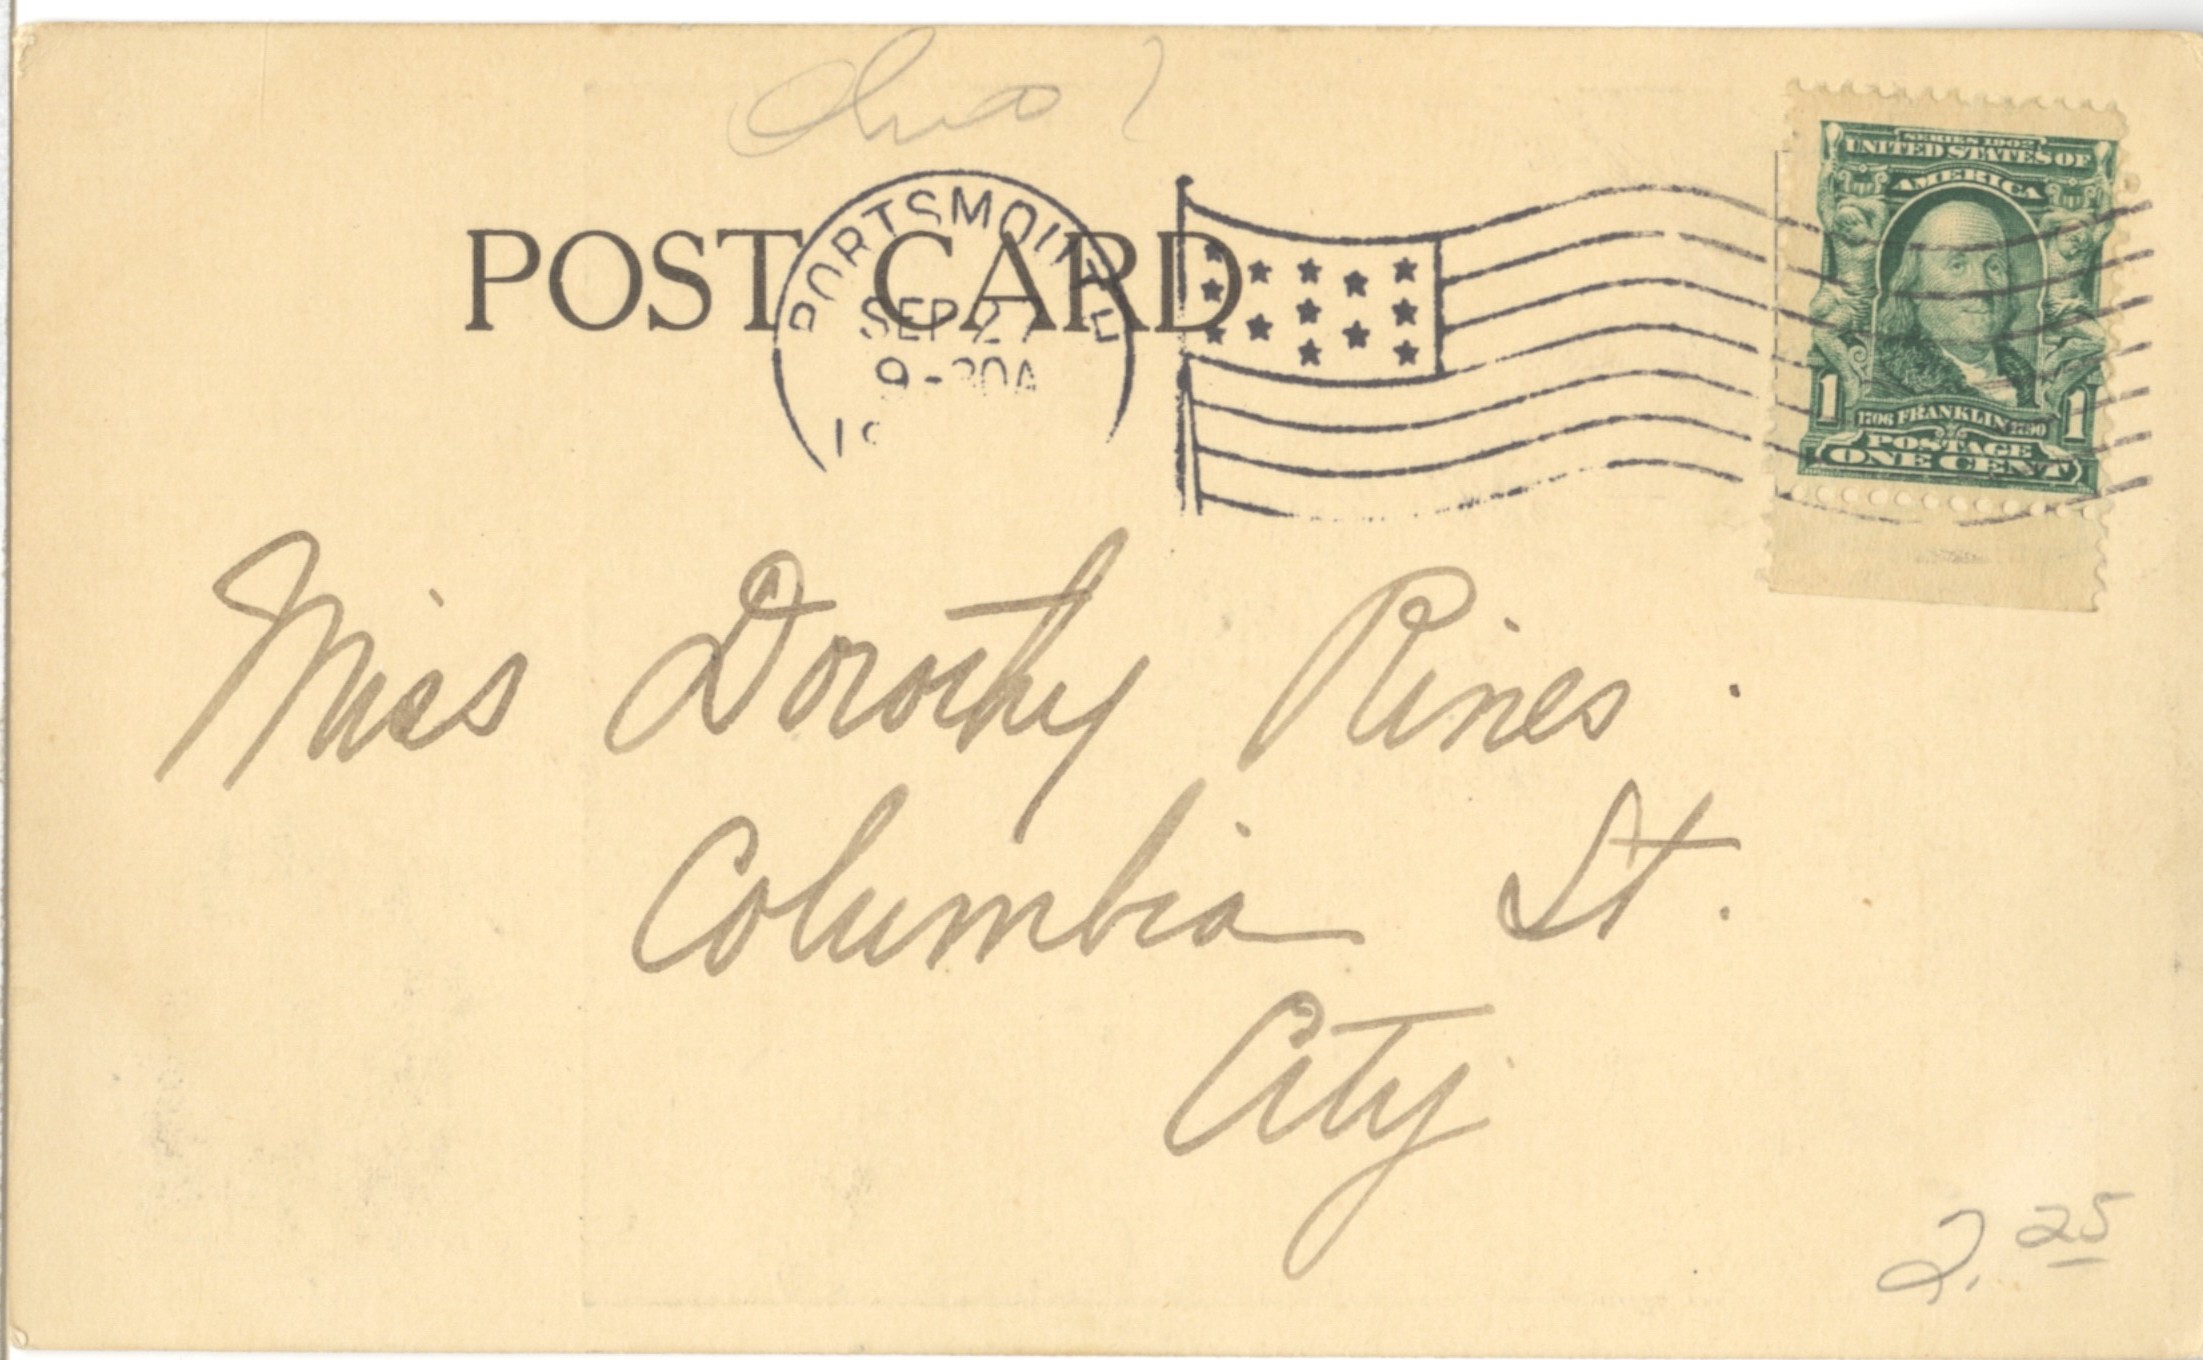 POST CARD
PORTSMOUTH
SEP 27
9-30A
19
SERIES 1902
UNITED STATES OF
AMERICA
1 1706 FRANKLIN 1790 1
POSTAGE
ONE CENT
Miss Dorothy Rines.
Columbia St.
City
2.25